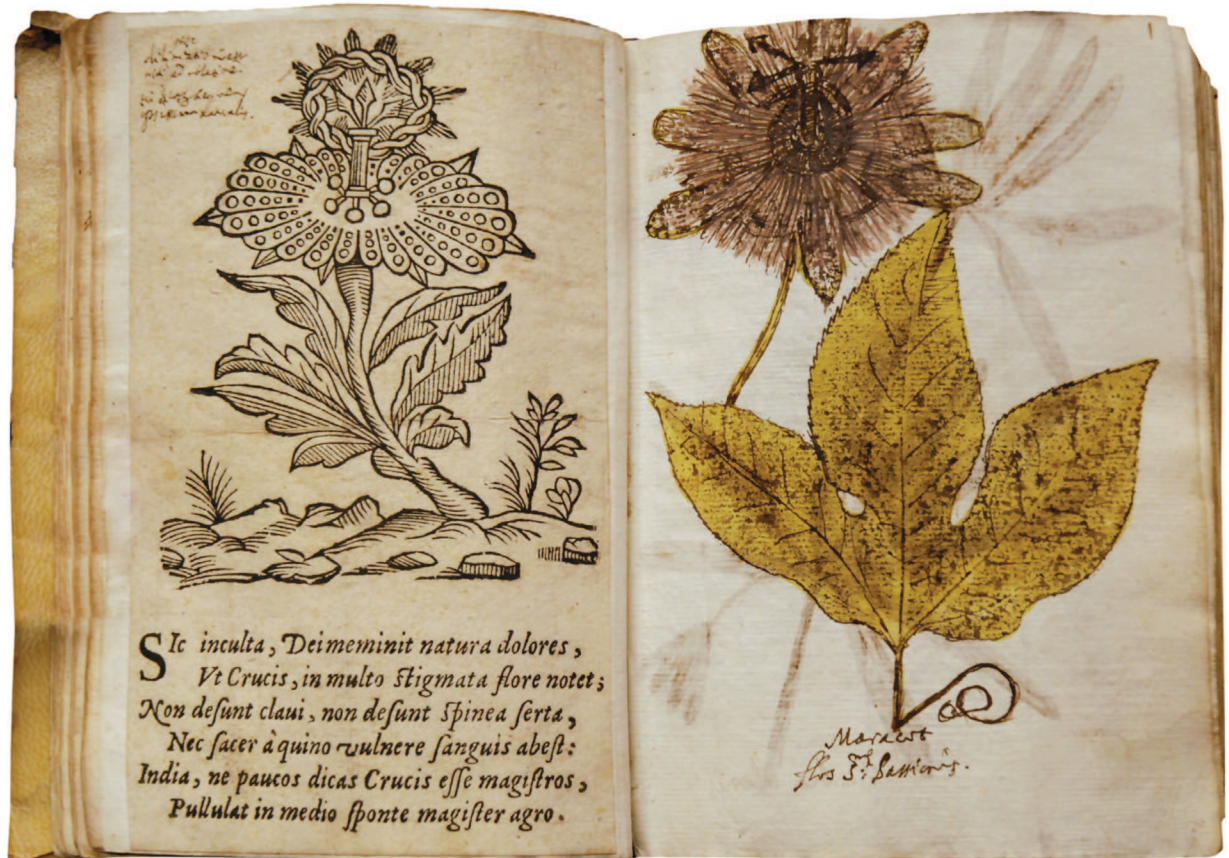 SIc inculta, Dei meminit natura dolores,
Vt Crucis, in multo ſtigmata flore notet;
Non deſunt claui, non deſunt ſpinea ſerta,
Nec ſacer à quino vulnere ſanguis abeſt:
India, ne paucos dicas Crucis eſſe magiſtros,
Pullulat in medio ſponte magiſter agro.
Maracot
flos